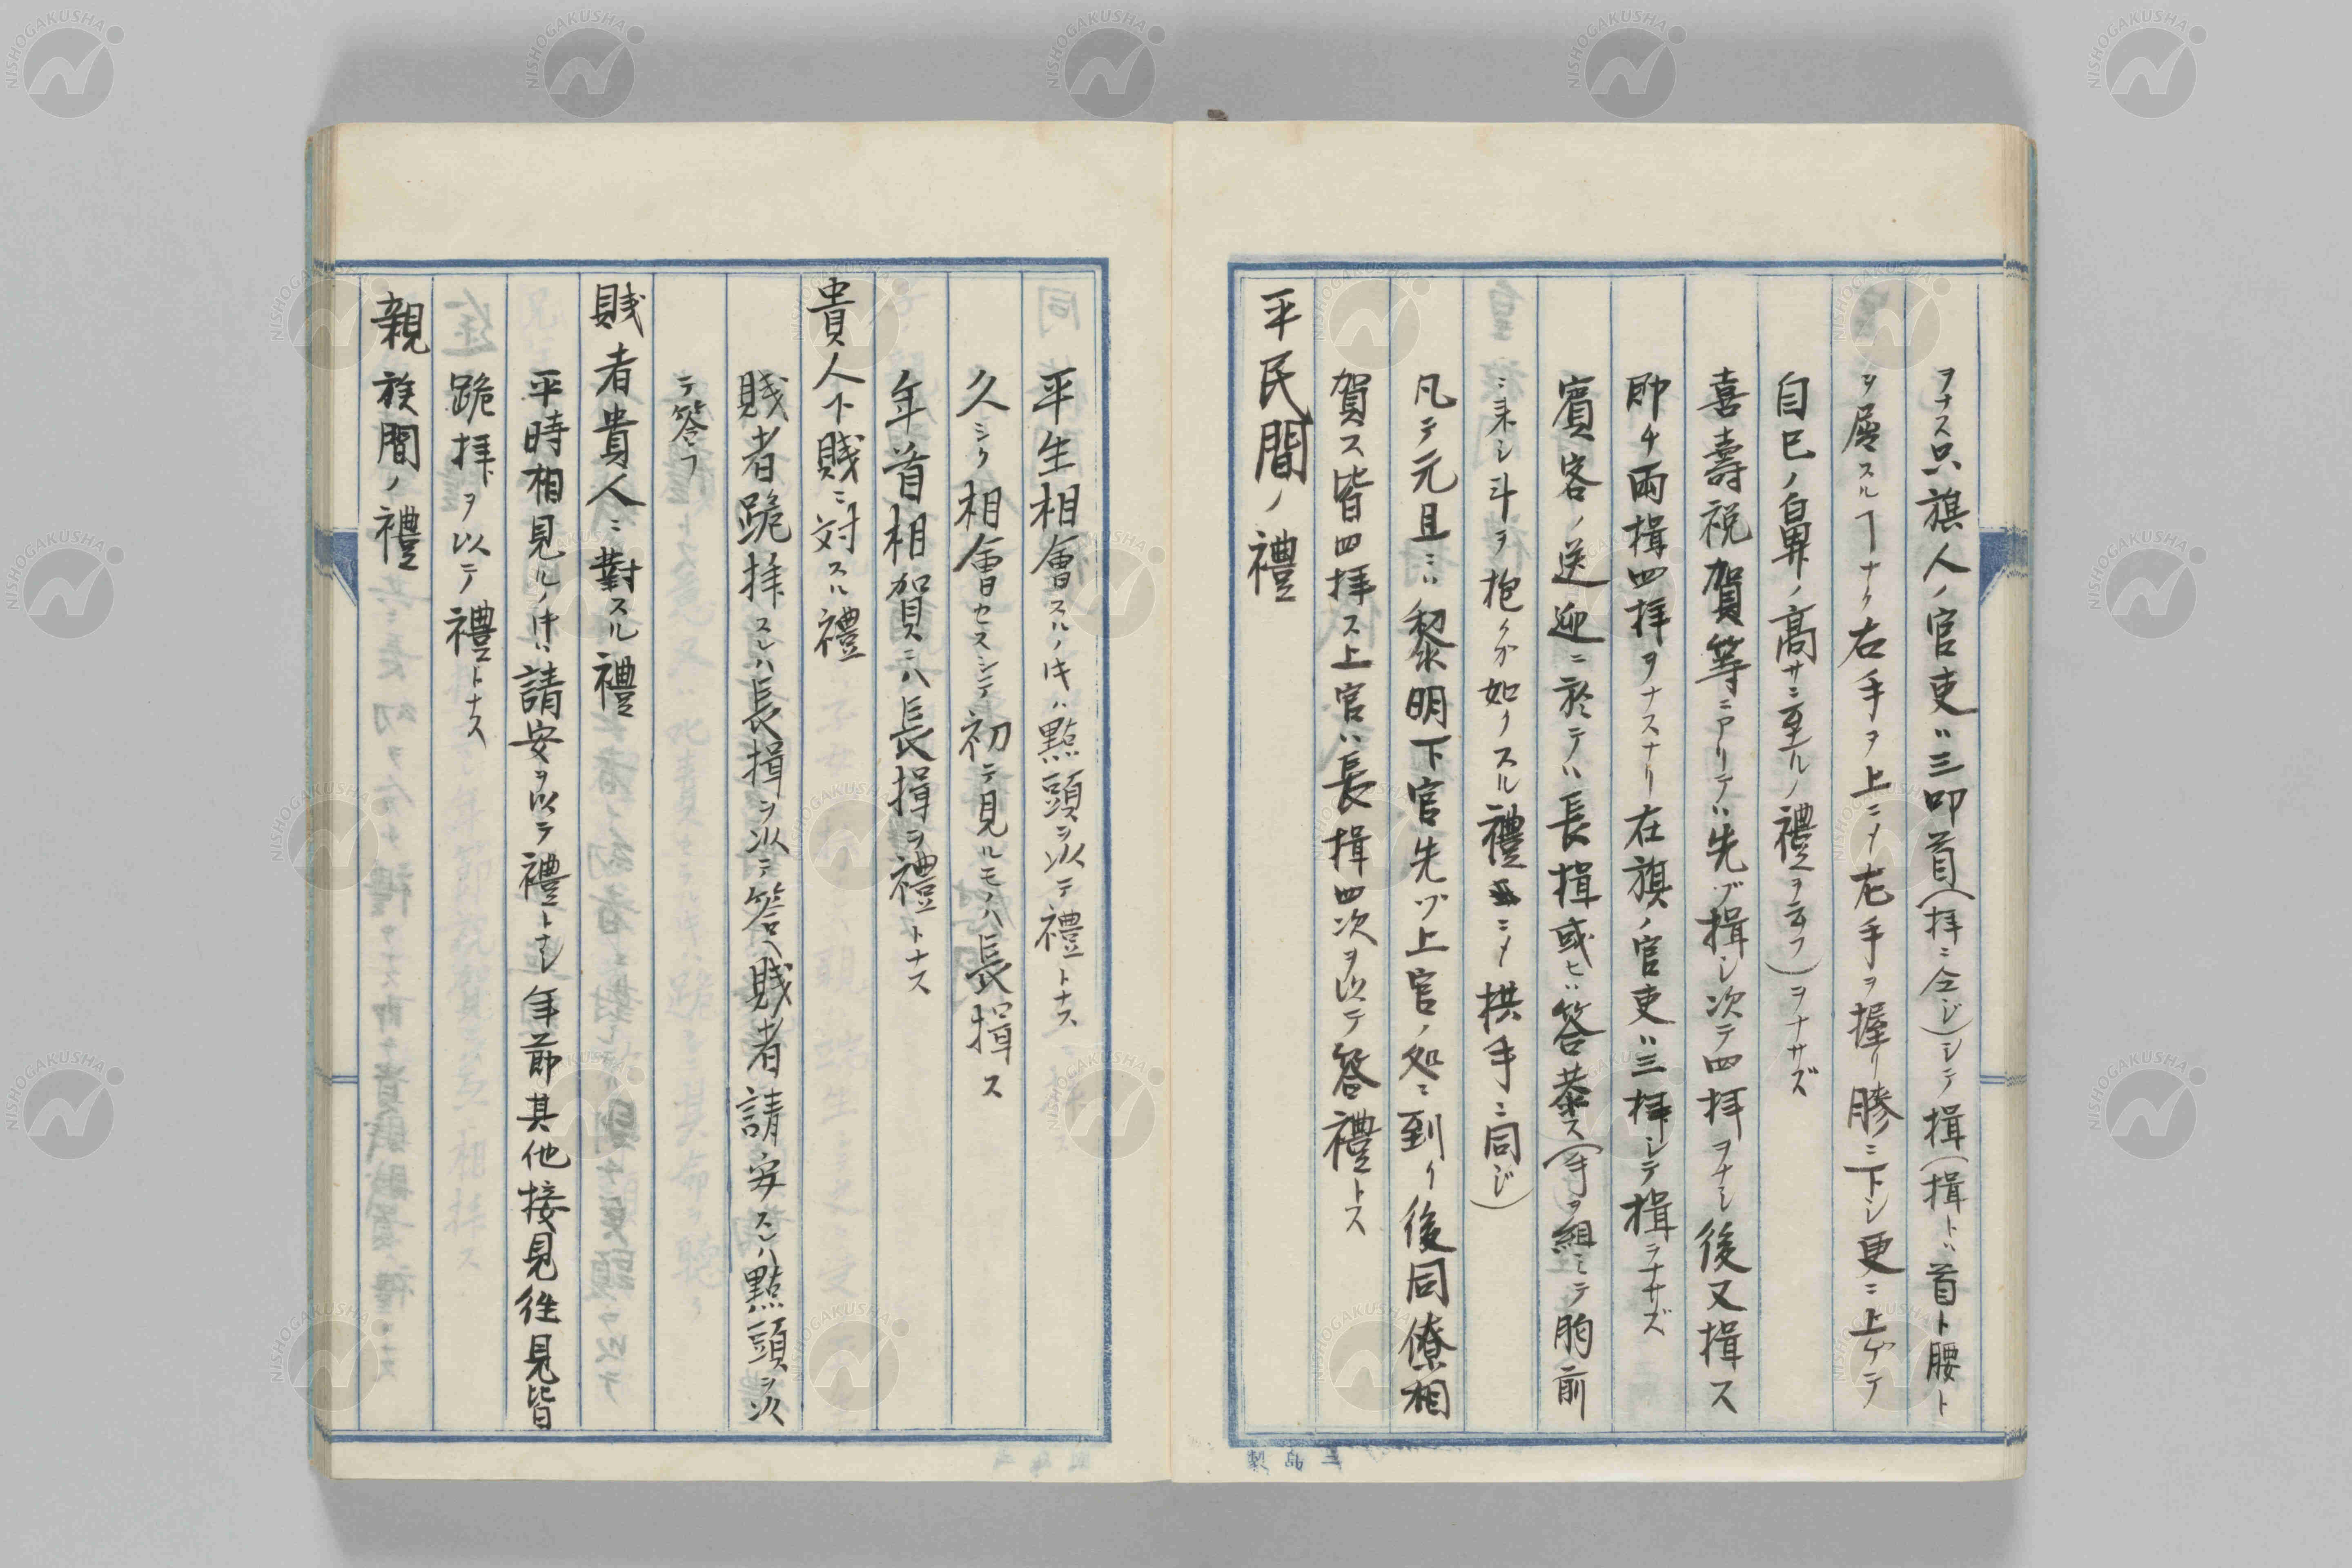 ヲナス只旗人ノ官吏ハ三叩首(拝ニ仝ジ)シテ揖(揖トハ首ト腰ト
ヲ屈スルヿナク右手ヲ上ニメ左手ヲ握リ膝ニ下シ更ニ上ゲテ
自己ノ鼻ノ高サニ至ルノ禮ヲ云フ)ヲナサズ
喜壽祝賀等ニアリテハ先ヅ揖シ次テ四拝ヲナシ後又揖ス
即チ両揖四拝ヲナスナリ在旗ノ官吏ハ三拝シテ揖ヲナサズ
賓客ノ送迎ニ於テハ長揖或ヒハ答恭ス(手ヲ組ミテ胸前
ニ来シ斗ヲ抱クガ如クスル禮ニメ拱手ニ同ジ)
凡テ元旦ニハ黎明下官先ヅ上官ノ処ニ到リ後同僚相
賀ス皆四拝ス上官ハ長揖四次ヲ以テ答禮トス
平民間ノ禮
平生相會スルノ時ハ點頭ヲ以テ禮トナス
久シク相會セスシテ初テ見ルモノハ長揖ス
年首相賀スニハ長揖ヲ禮トナス
貴人下賎ニ対スル禮
賎者跪拝スレハ長揖ヲ以テ答ヘ賎者請安スレハ點頭ヲ以
テ答フ
賎者貴人ニ對スル禮
平時相見ルノ時ハ請安ヲ以テ禮トナシ年節其他接見往見皆
跪拝ヲ以テ禮トナス
親族間ノ禮
三島製
NISHOGAKUSHA